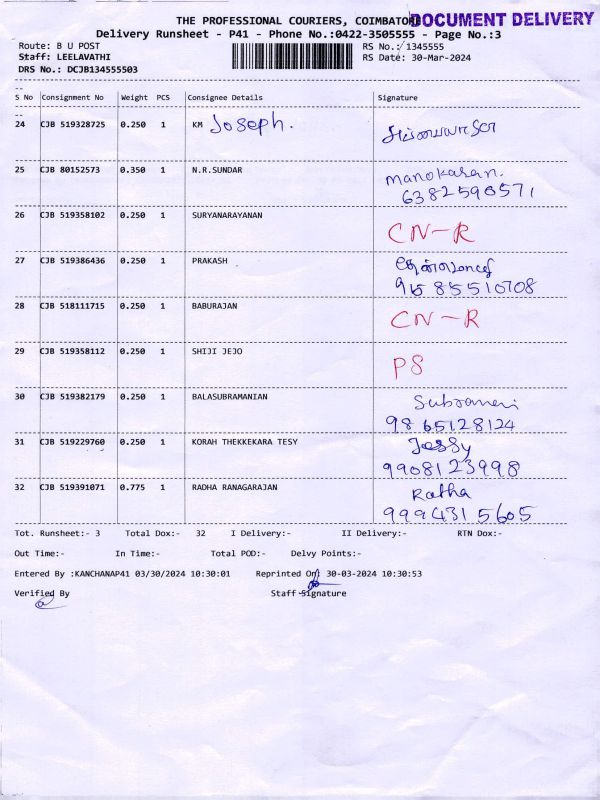 THE PROFESSIONAL COURIERS, COIMBATORE
DOCUMENT DELIVERY
Delivery Runsheet - P41 - Phone No.:0422-3505555 - Page No.:3
Route: B U POST
RS No.: 1345555
Staff: LEELAVATHI
RS Date: 30-Mar-2024
DRS No.: DCJB134555503
S No Consignment No Weight PCS Consignee Details Signature
24 CJB 519328725 0.250 1 KM Joseph.
25 CJB 80152573 0.350 1 N.R.SUNDAR manokaran.
6382590571
26 CJB 519358102 0.250 1 SURYANARAYANAN CN-R
27 CJB 519386436 0.250 1 PRAKASH
9585510708
28 CJB 518111715 0.250 1 BABURAJAN CN-R
29 CJB 519358112 0.250 1 SHIJI JEJO PS
30 CJB 519382179 0.250 1 BALASUBRAMANIAN Subramani
9865128124
31 CJB 519229760 0.250 1 KORAH THEKKEKARA TESY Jessy
9908123998
32 CJB 519391071 0.775 1 RADHA RANAGARAJAN Ratha
9994315605
Tot. Runsheet:- 3 Total Dox:- 32 I Delivery:- II Delivery:- RTN Dox:-
Out Time:- In Time:- Total POD:- Delvy Points:-
Entered By :KANCHANAP41 03/30/2024 10:30:01 Reprinted On: 30-03-2024 10:30:53
Verified By Staff Signature